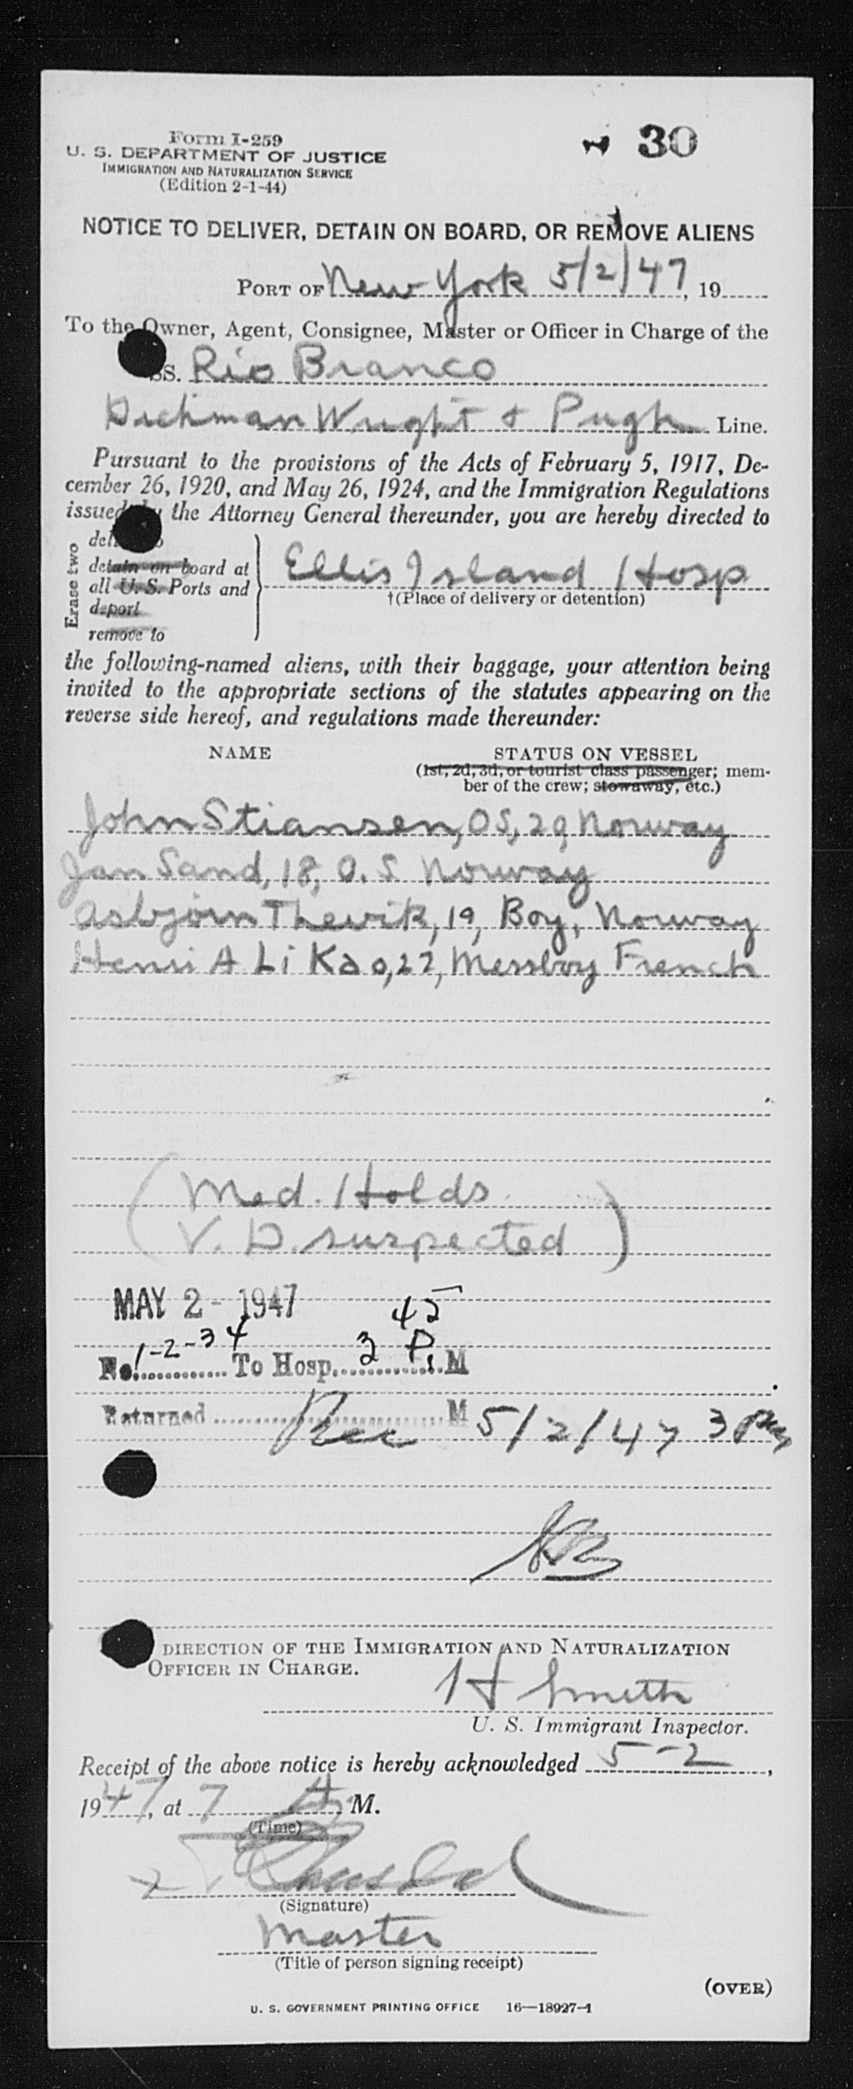 Form I-259
U. S. DEPARTMENT OF JUSTICE
IMMIGRATION AND NATURALIZATION SERVICE
(Edition 2-1-44)
30
NOTICE TO DELIVER, DETAIN ON BOARD, OR REMOVE ALIENS
PORT OF New York 5/2/47, 19
To the Owner, Agent, Consignee, Master or Officer in Charge of the
SS. Rio Branco
Dichman Wright & Pugh Line.
Pursuant to the provisions of the Acts of February 5, 1917, De-
cember 26, 1920, and May 26, 1924, and the Immigration Regulations
issued by the Attorney General thereunder, you are hereby directed to
Erase two
detain on board at
all U. S. Ports and
deport
remove to
Ellis Island Hosp
†(Place of delivery or detention)
the following-named aliens, with their baggage, your attention being
invited to the appropriate sections of the statutes appearing on the
reverse side hereof, and regulations made thereunder:
NAME STATUS ON VESSEL
(1st, 2d, 3d, or tourist class passenger; mem-
ber of the crew; stowaway, etc.)
John Stiansen, OS, 29 Norway
Jan Sand, 18, O. S Norway
Asbjorn Thevik, 19, Boy, Norway
Henri A Li Kao, 27, Messboy French
(Med. Holds
V. D. suspected)
MAY 2 - 1947
No. 1-2-3 4 To Hosp. 3 45 P. M
Returned M
Rec 5/2/47 3 pm
DIRECTION OF THE IMMIGRATION AND NATURALIZATION
OFFICER IN CHARGE.
H Smith
U. S. Immigrant Inspector.
Receipt of the above notice is hereby acknowledged 5-2,
1947, at 7 A. M.
(Time)
(Signature)
Master
(Title of person signing receipt)
(OVER)
U. S. GOVERNMENT PRINTING OFFICE 16—18927-1